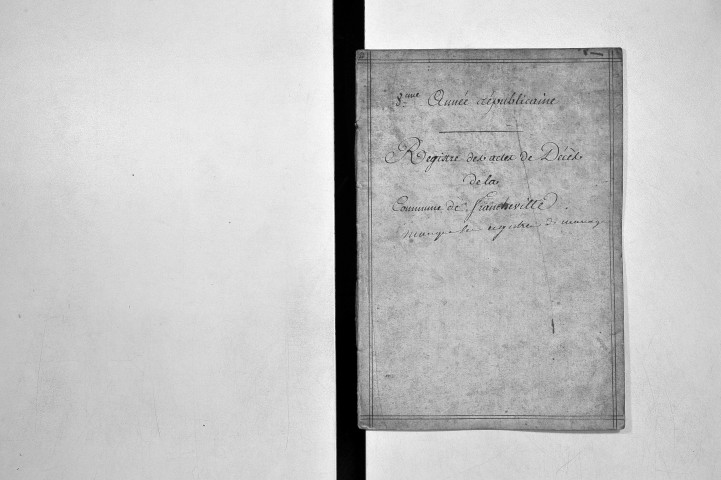 8.eme Année républicaine
Registre des actes de Décès
de la
Commune de Francheville.
manque le registre de mariage